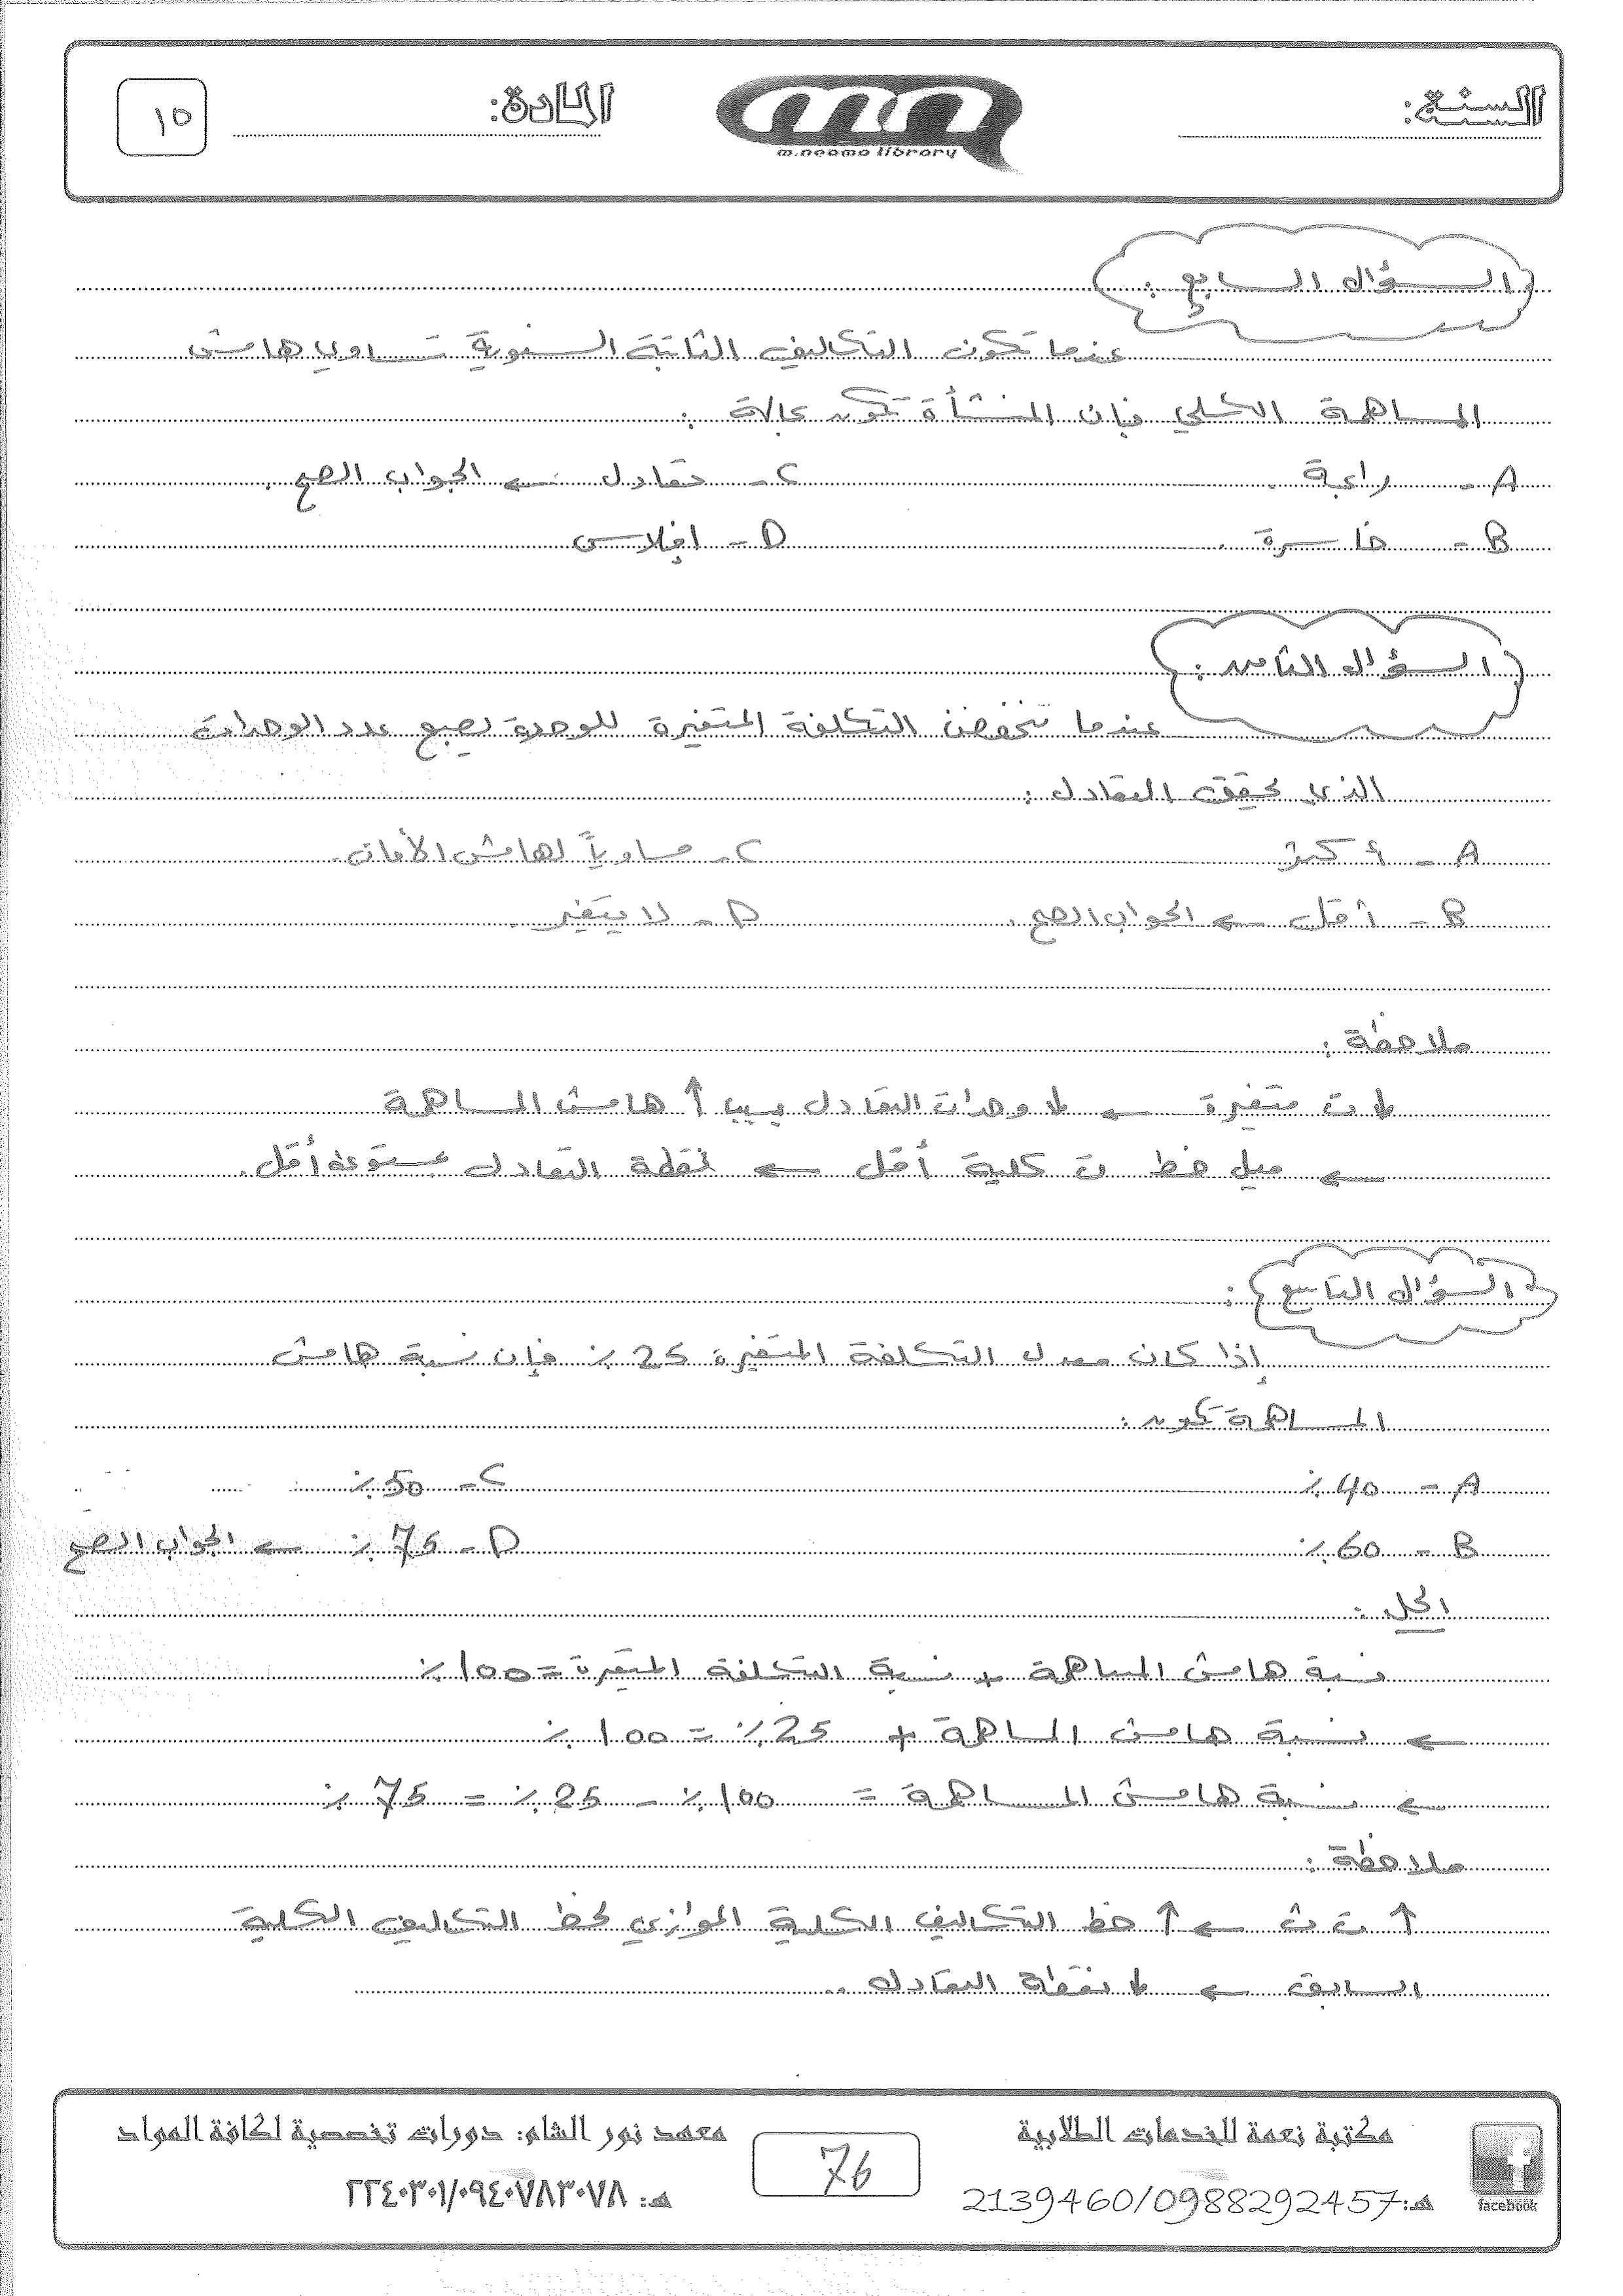 السنة:
m.neama library
المادة:
١٥
السؤال السابع:
عندما تكون التكاليف الثابتة السنوية تساوي هامش
المساهمة الكلي فإن المنشأة تكون بحالة :
A - رابحة .
C - تعادل ← الجواب الصح .
B - خاسرة .
D - افلاس
السؤال الثامن :
عندما تنخفض التكلفة المتغيرة للوحدة يصبح عدد الوحدات
الذي يحقق التعادل :
A - أكبر
C - مساوياً لهامش الأمان .
B - أقل ← الجواب الصح .
D - لا يتغير .
ملاحظة :
↓ ت متغيرة ← ↓ وحدات التعادل بسبب ↑ هامش المساهمة
← ميل خط ت كلية أقل ← نقطة التعادل بمستوى أقل .
السؤال التاسع :
إذا كان معدل التكلفة المتغيرة 25 ٪ فإن نسبة هامش
المساهمة تكون :
A - 40 ٪
C - 50 ٪
B - 60 ٪
D - 75 ٪ ← الجواب الصح
الحل :
نسبة هامش المساهمة + نسبة التكلفة المتغيرة = 100 ٪
← نسبة هامش المساهمة + 25 ٪ = 100 ٪
← نسبة هامش المساهمة = 100 ٪ - 25 ٪ = 75 ٪
ملاحظة :
↑ ت ث ← ↑ خط التكاليف الكلية الموازي لخط التكاليف الكلية
السابق ← ↓ نقطة التعادل ..
facebook
مكتبة نعمة للخدمات الطلابية
هـ: 2139460/0988292457
76
معهد نور الشام: دورات تخصصية لكافة المواد
هـ: ٢٢٤٠٣٠١/٠٩٤٠٧٨٣٠٧٨